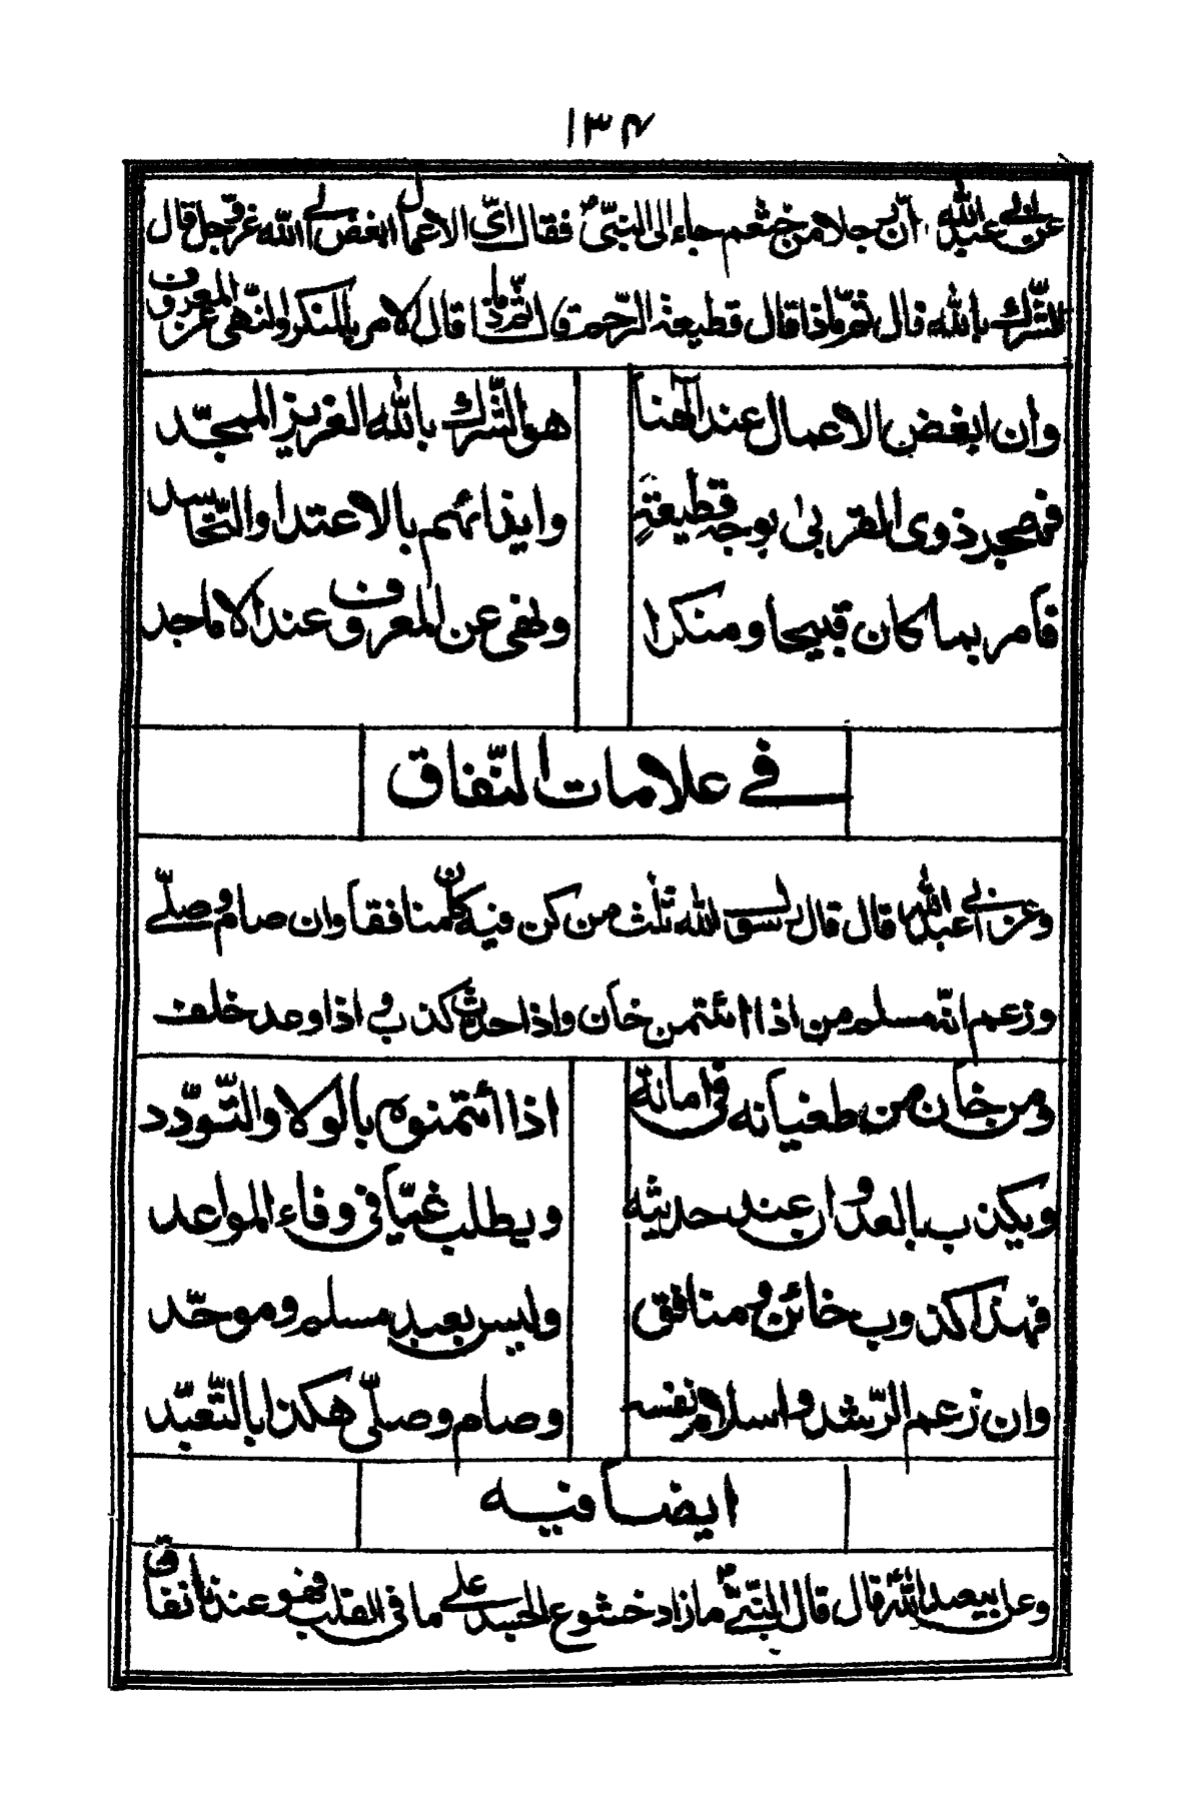 ١٣۴
عن ابي عبدالله أن رجلا من خثعم جاء الى النبيّ فقال ايّ الاعمال ابغض الى الله عزوجل قال
الشّرك بالله قال ثم ماذا قال قطيعة الرّحم قال ثمّ ماذا قال الامر بالمنكر والنّهى عن المعروف
وان ابغض الاعمال عند الٰهنا
هو الشّرك بالله العزيز الممجّد
فهجر ذوى القربىٰ بوجه قطيعة
وايذائهم بالاعتدا والتّحاسد
فامر بما كان قبيحا ومنكرا
ونهى عن المعروف عند الاماجد
في علامات النّفاق
وعن ابي عبدالله قال قال رسول الله ثلٰث من كن فيه كان منافقا وان صام وصلّى
وزعم انّه مسلم من اذا ائتمن خان واذا حدث كذب و اذا وعد خلف
ومن خان من طغيانه فى امانة
اذا ائتمنوه بالولا والتّودّد
ويكذب بالعدوان عند حديثه
ويطلب غيّا فى وفاء المواعد
فهذا كذوب خائن و منافق
وليس بعبد مسلم وموحّد
وان زعم الرّشد و اسلام نفسه
وصام وصلّى هكذا بالتّعبّد
ايضا فيه
وعن ابيعبدالله قال قال النّبيّ ما زاد خشوع الجسد على ما فى القلب فهو عندنا نفاق